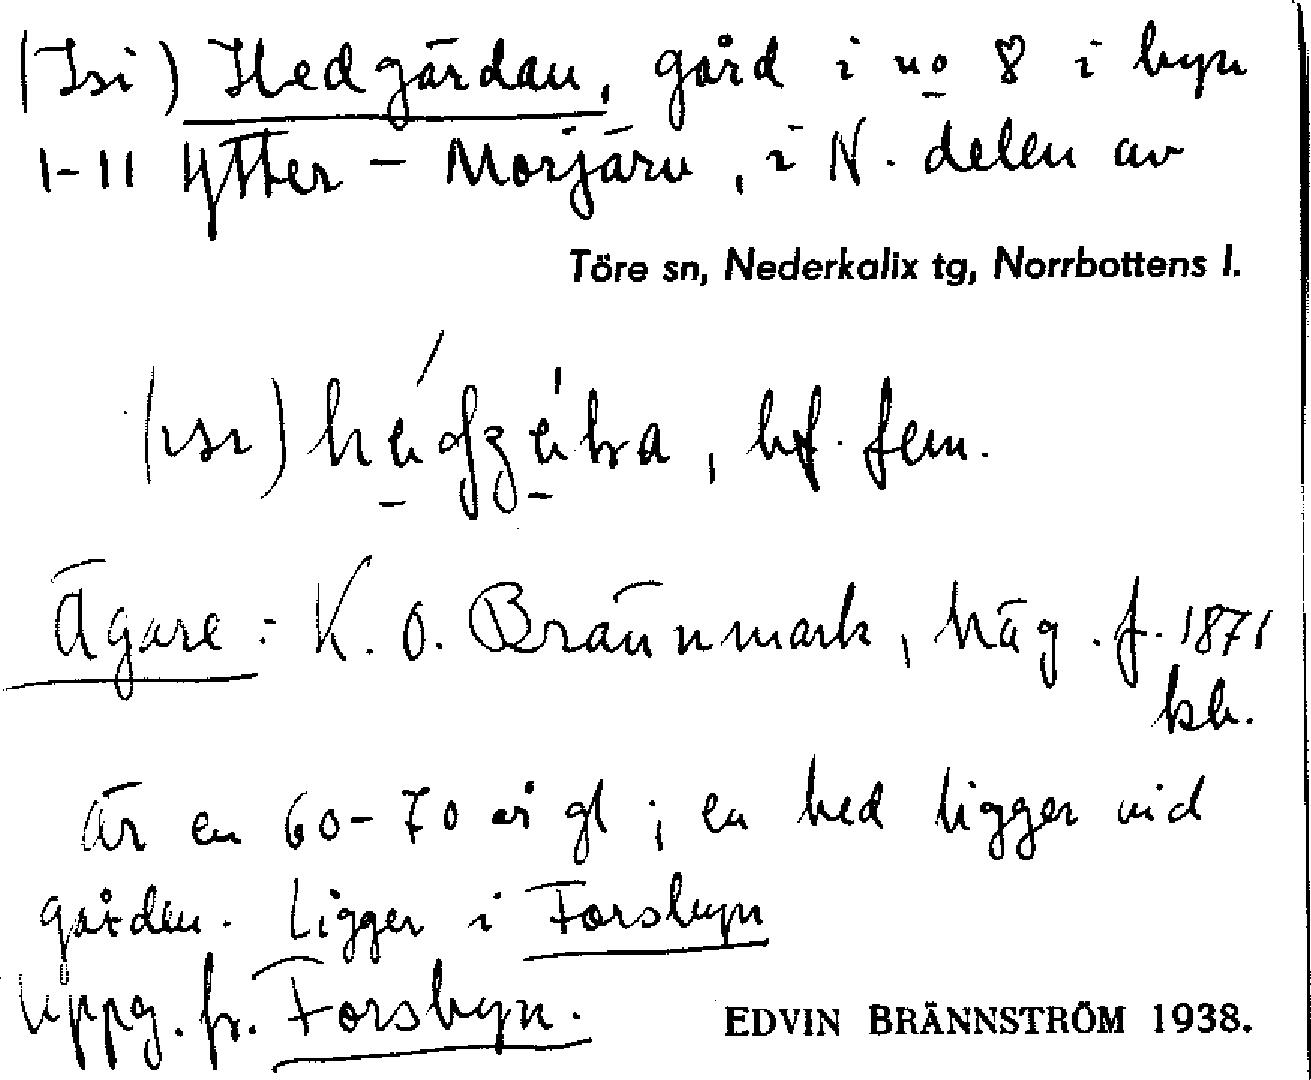 (Isi) Hedgärdan, gård i no 8 i byn
1-11 Ytter-Morjärv, i N. delen av
Töre sn, Nederkalix tg, Norrbottens l.
bf. fem.
Ägare: K. O. Brännmark, häg. f. 1871
kb.
Är en 60-70 år gl; en hed ligger vid
gården. Ligger i Forsbyn
Uppg. fr. Forsbyn.
EDVIN BRÄNNSTRÖM 1938.